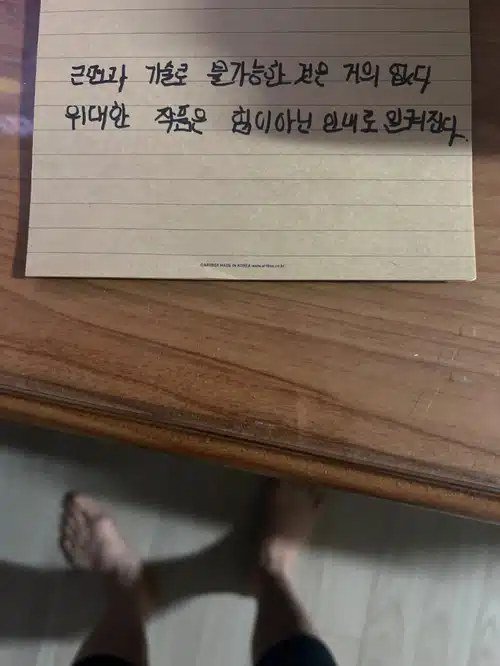 근면과 기술로 불가능한 것은 거의 없다
위대한 작품은 힘이아닌 인내로 완켜진다.
MADE IN KOREA